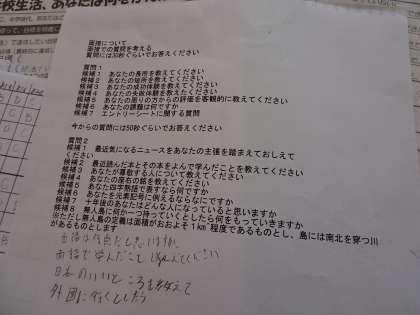 校生活、あなたは何を
面接について
面接での質問を考える
質問には30秒ぐらいでお答えください
質問1
候補1 あなたの長所を教えてください
候補2 あなたの短所を教えてください
候補3 あなたの成功体験を教えてください
候補4 あなたの失敗体験を教えてください
候補5 あなたの周りの方からの評価を客観的に教えてください
候補6 あなたの課題は何ですか
候補7 エントリーシートに関する質問
今からの質問には50秒ぐらいでお答えください
質問2
候補1 最近気になるニュースをあなたの主張を踏まえておしえて
ください
候補2 最近読んだ本とその本をよんで学んだことを教えてください
候補3 あなたが尊敬する人について教えてください
候補4 あなたの座右の銘を教えてください
候補5 あなたを四字熟語で表すなら何ですか
候補6 あなたを元素記号に例えるならなにですか
候補7 十年後のあなたはどんな人になっていると思いますか
候補8 無人島に何か一つ持っていくとしたら何をもっていきますか
※ただし無人島の定義は面積がおおよそ1㎢程度であるものとし、島には南北を穿つ川
があるものとします
面接で学んだこと
日本のいいところを教えて
外国に行くとしたら